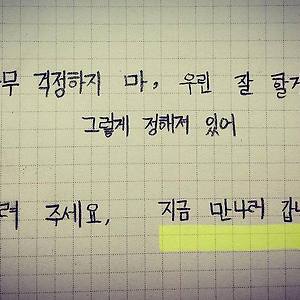 무 걱정하지 마, 우린 잘 할거
그렇게 정해져 있어
려 주세요, 지금 만나러 갑니